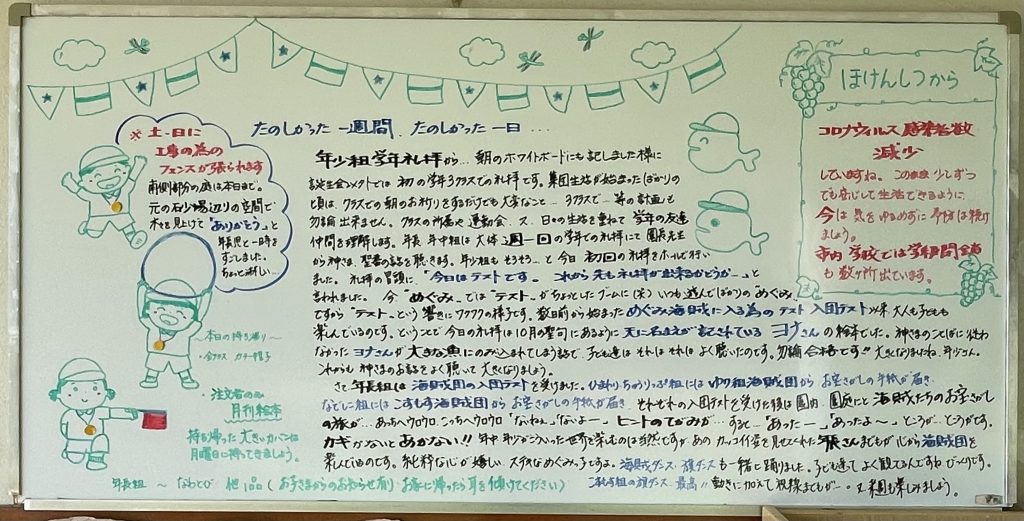 たのしかった 一週間、たのしかった 一日…
※ 土・日に
工事の為の
フェンスが張られます
南側部分の庭は本日まで。
元の石砂場辺りの空間で
木々を見上げて「ありがとう」と
年長児と一時を
すごしました。
ちょっと淋しい…
本日の持ち帰り〜
全クラス カラー帽子
注文者のみ
月刊絵本
持ち帰った 大きいカバンは
月曜日に持ってきましょう。
年長組 〜 なわとび 他1品 (お子さまからのお知らせ有り お家に帰ったら耳を傾けてください)
年少組 学年礼拝から… 朝のホワイトボードにも記しました様に
誕生会以外では 初の学年3クラスでの礼拝です。集団生活が始まったばかりの
頃は、クラスでの朝のお祈りをするだけでも大変なこと… 3クラスで… 等の計画も
勿論 出来ません。クラスの仲間や 運動会、又、日々の生活を重ねて 学年の友達
仲間を理解します。年長 年中組は 大体 2週一回の学年での礼拝にて 園長先生
から神さま、聖書の話を聴きます。年少組も そろそろ…と 今日 初回の礼拝をホールで行い
ました。礼拝の冒頭に、「今日はテストです。これから先も礼拝が出来るかどうか…」と
言われました。今 "めぐみ" では "テスト" がちょっとしたブームに(笑) いつも遊んでばかりの "めぐみ"
ですから "テスト" という響きにワクワクの様子です。数日前から始まった めぐみ海賊に入る為の テスト 入団テスト以来 大人も子どもも
楽しんでいるのです。ということで 今日の礼拝は10月の聖句にあるように 天に名まえが記されている ヨナさんの絵本でした。神さまのことばに従わ
なかった ヨナさんが 大きな魚にのみ込まれてしまう話で、子ども達は それは それは よく聴いたのです。勿論 合格です!! 大きくなりましたね、年少さん。
これからも 神さまのお話をよく聴いて 大きくなりましょう。
さて 年長組は 海賊団の入団テストを受けました。ひまわり・ちゅうりっぷ組には ゆり組海賊団から お宝さがしの手紙が届き、
なでしこ組には こすもす海賊団から お宝さがしの手紙が届き、それぞれの入団テストを受けた後は 園内、園庭にと 海賊たちのお宝さがし
の旅が… あっちへウロウロ、こっちへウロウロ「ないねぇ」「ないよー」 ヒントのてがみが… すると…「あったー」「あったよ〜」 ところが…ところがです。
カギがないと あかない!! 年中 年少がこういった世界を楽しむのは当然ですが、あの カッコイイ姿を見せてくれた 年長さんまでもが 心から 海賊団を
楽しんでいるのです。純粋な心が 嬉しい ステキなめぐみっ子ですよ。海賊ダンス・旗ダンスも 一緒に踊りました。子ども達って よく観てるんですね びっくりです。
動きに加えて 視線までもが…。又 来週も 楽しみましょう。
ほけんしつから
コロナウィルス 感染者数
減少
していますね。このまま 少しずつ
でも 安心して生活できるように
今は 気をゆるめずに 予防は続け
ましょう。
市内 学校では 学年閉鎖
も 数ヶ所出ています。